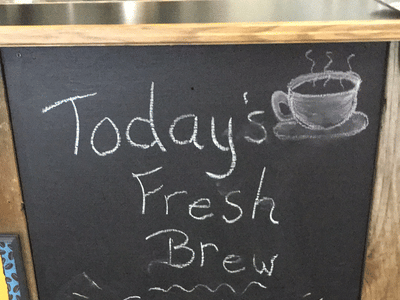 Today's
Fresh
Brew